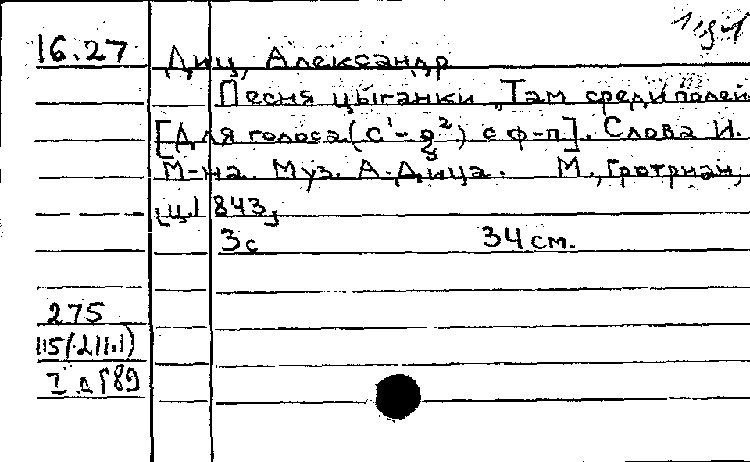 16.27 Диц, Александр
Песня цыганки „Там среди полей
[Для голоса (c¹-g²) с ф-п]. Слова И.
М-на. Муз. А. Дица. М., Гротриан,
[ц. 1843]
3с 34 см.
275
115(211.1)